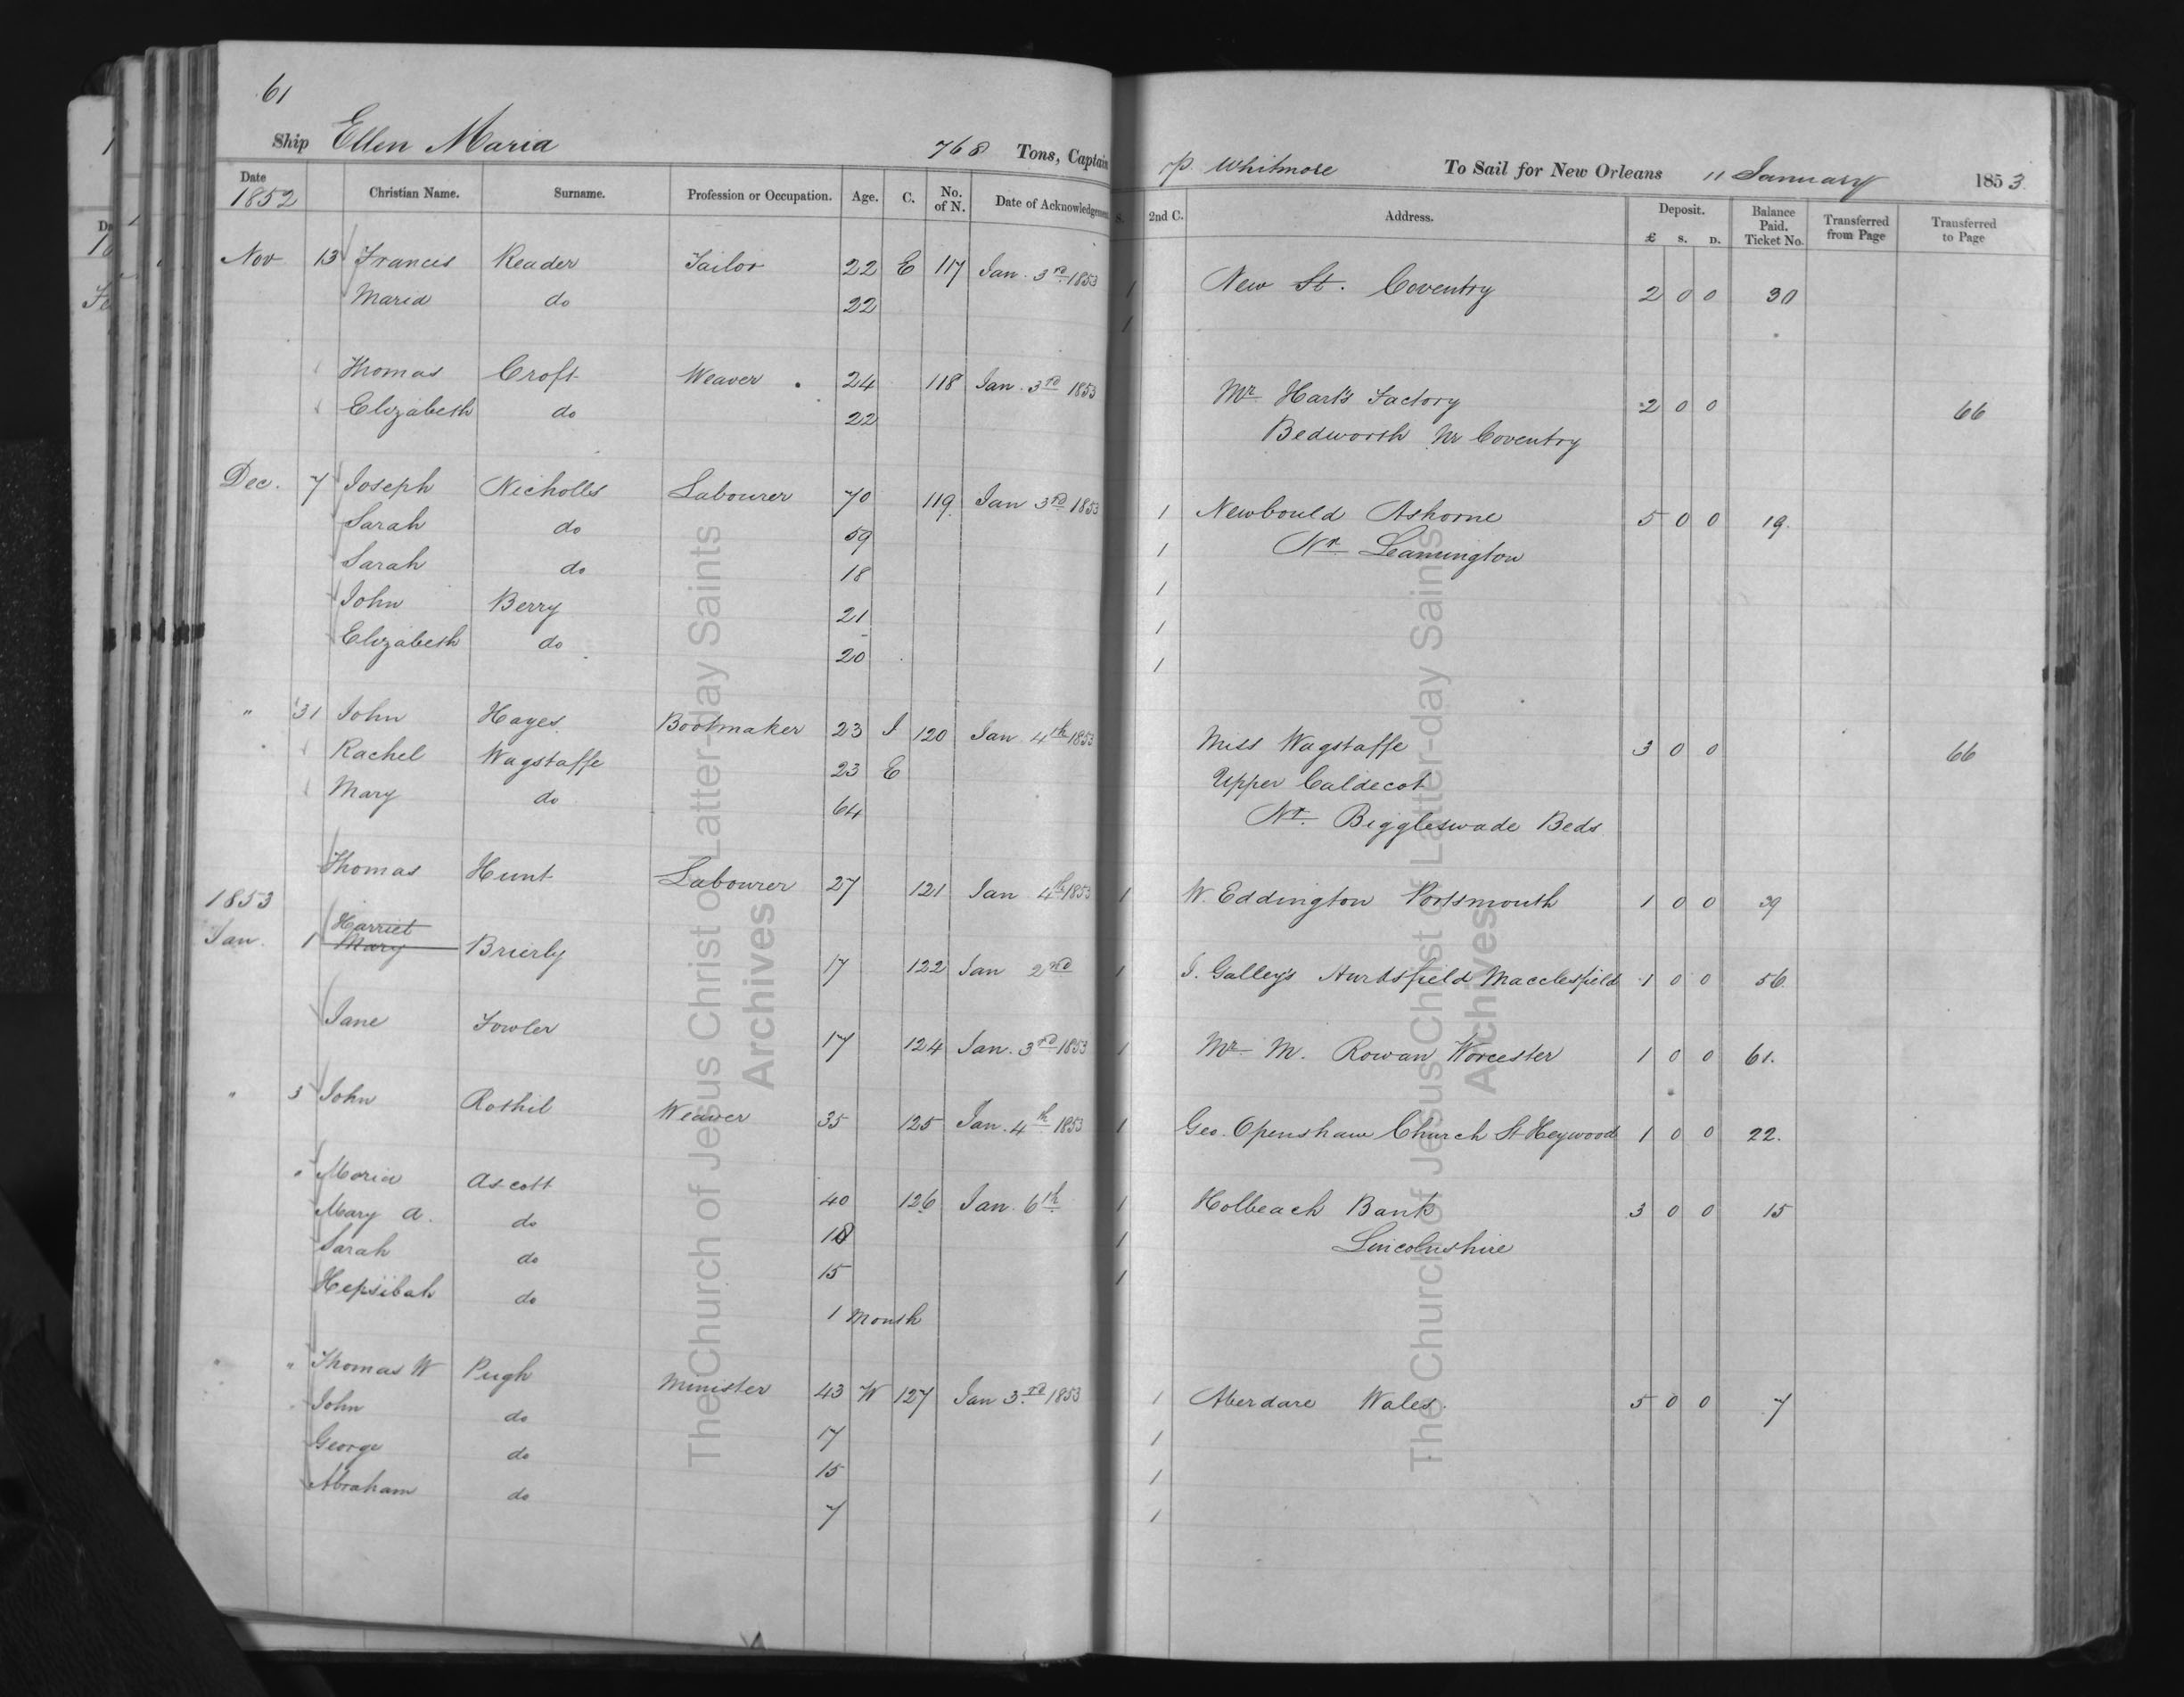 61
Ship Ellen Maria 768 Tons, Captain Whitmore To Sail for New Orleans 11 January 1853
Date Christian Name. Surname. Profession or Occupation. Age. C. No. of N. Date of Acknowledgement S. 2nd C. Address. Deposit. £ s. D. Balance Paid. Ticket No. Transferred from Page Transferred to Page
1852
Nov 13 Frances Reader Tailor 22 E 117 Jan. 3rd 1853 1 New St. Coventry 2 0 0 30
Maria do 22 1
Thomas Croft Weaver 24 118 Jan. 3rd 1853 Mr Hart's Factory 2 0 0 66
Elizabeth do 22 Bedworth Nr Coventry
Dec. 7 Joseph Nicholls Labourer 70 119 Jan 3rd 1853 1 Newbould Ashorne 5 0 0 19.
Sarah do 59 1 Nr Leamington
Sarah do 18 1
John Berry 21 1
Elizabeth do 20 1
" 31 John Hayes Bootmaker 23 I 120 Jan 4th 1853 Miss Wagstaffe 3 0 0 66
Rachel Wagstaffe 23 E Upper Caldecot
Mary do 64 Nr. Biggleswade Beds
Thomas Hunt Labourer 27 121 Jan 4th 1853 1 W. Eddington Portsmouth 1 0 0 39
1853
Harriet
Jan. 1 Mary Brierly 17 122 Jan 2nd 1 J. Galley's Hurdsfield Macclesfield 1 0 0 56
Jane Fowler 17 124 Jan. 3rd 1853 1 Mr M. Rowan Worcester 1 0 0 61.
" 3 John Rothil Weaver 35 125 Jan. 4th 1853 1 Geo. Openshaw Church St Heywood 1 0 0 22.
" Maria Ascott 40 126 Jan. 6th 1 Holbeach Bank 3 0 0 15
Mary A. do 18 1 Lincolnshire
Sarah do 15 1
Hepsibah do 1 month
" " Thomas W Pugh Minister 43 W 127 Jan 3rd 1853 1 Aberdare Wales. 5 0 0 7
John do 17 1
George do 15 1
Abraham do 7 1
The Church of Jesus Christ of Latter-day Saints
Archives
The Church of Jesus Christ of Latter-day Saints
Archives